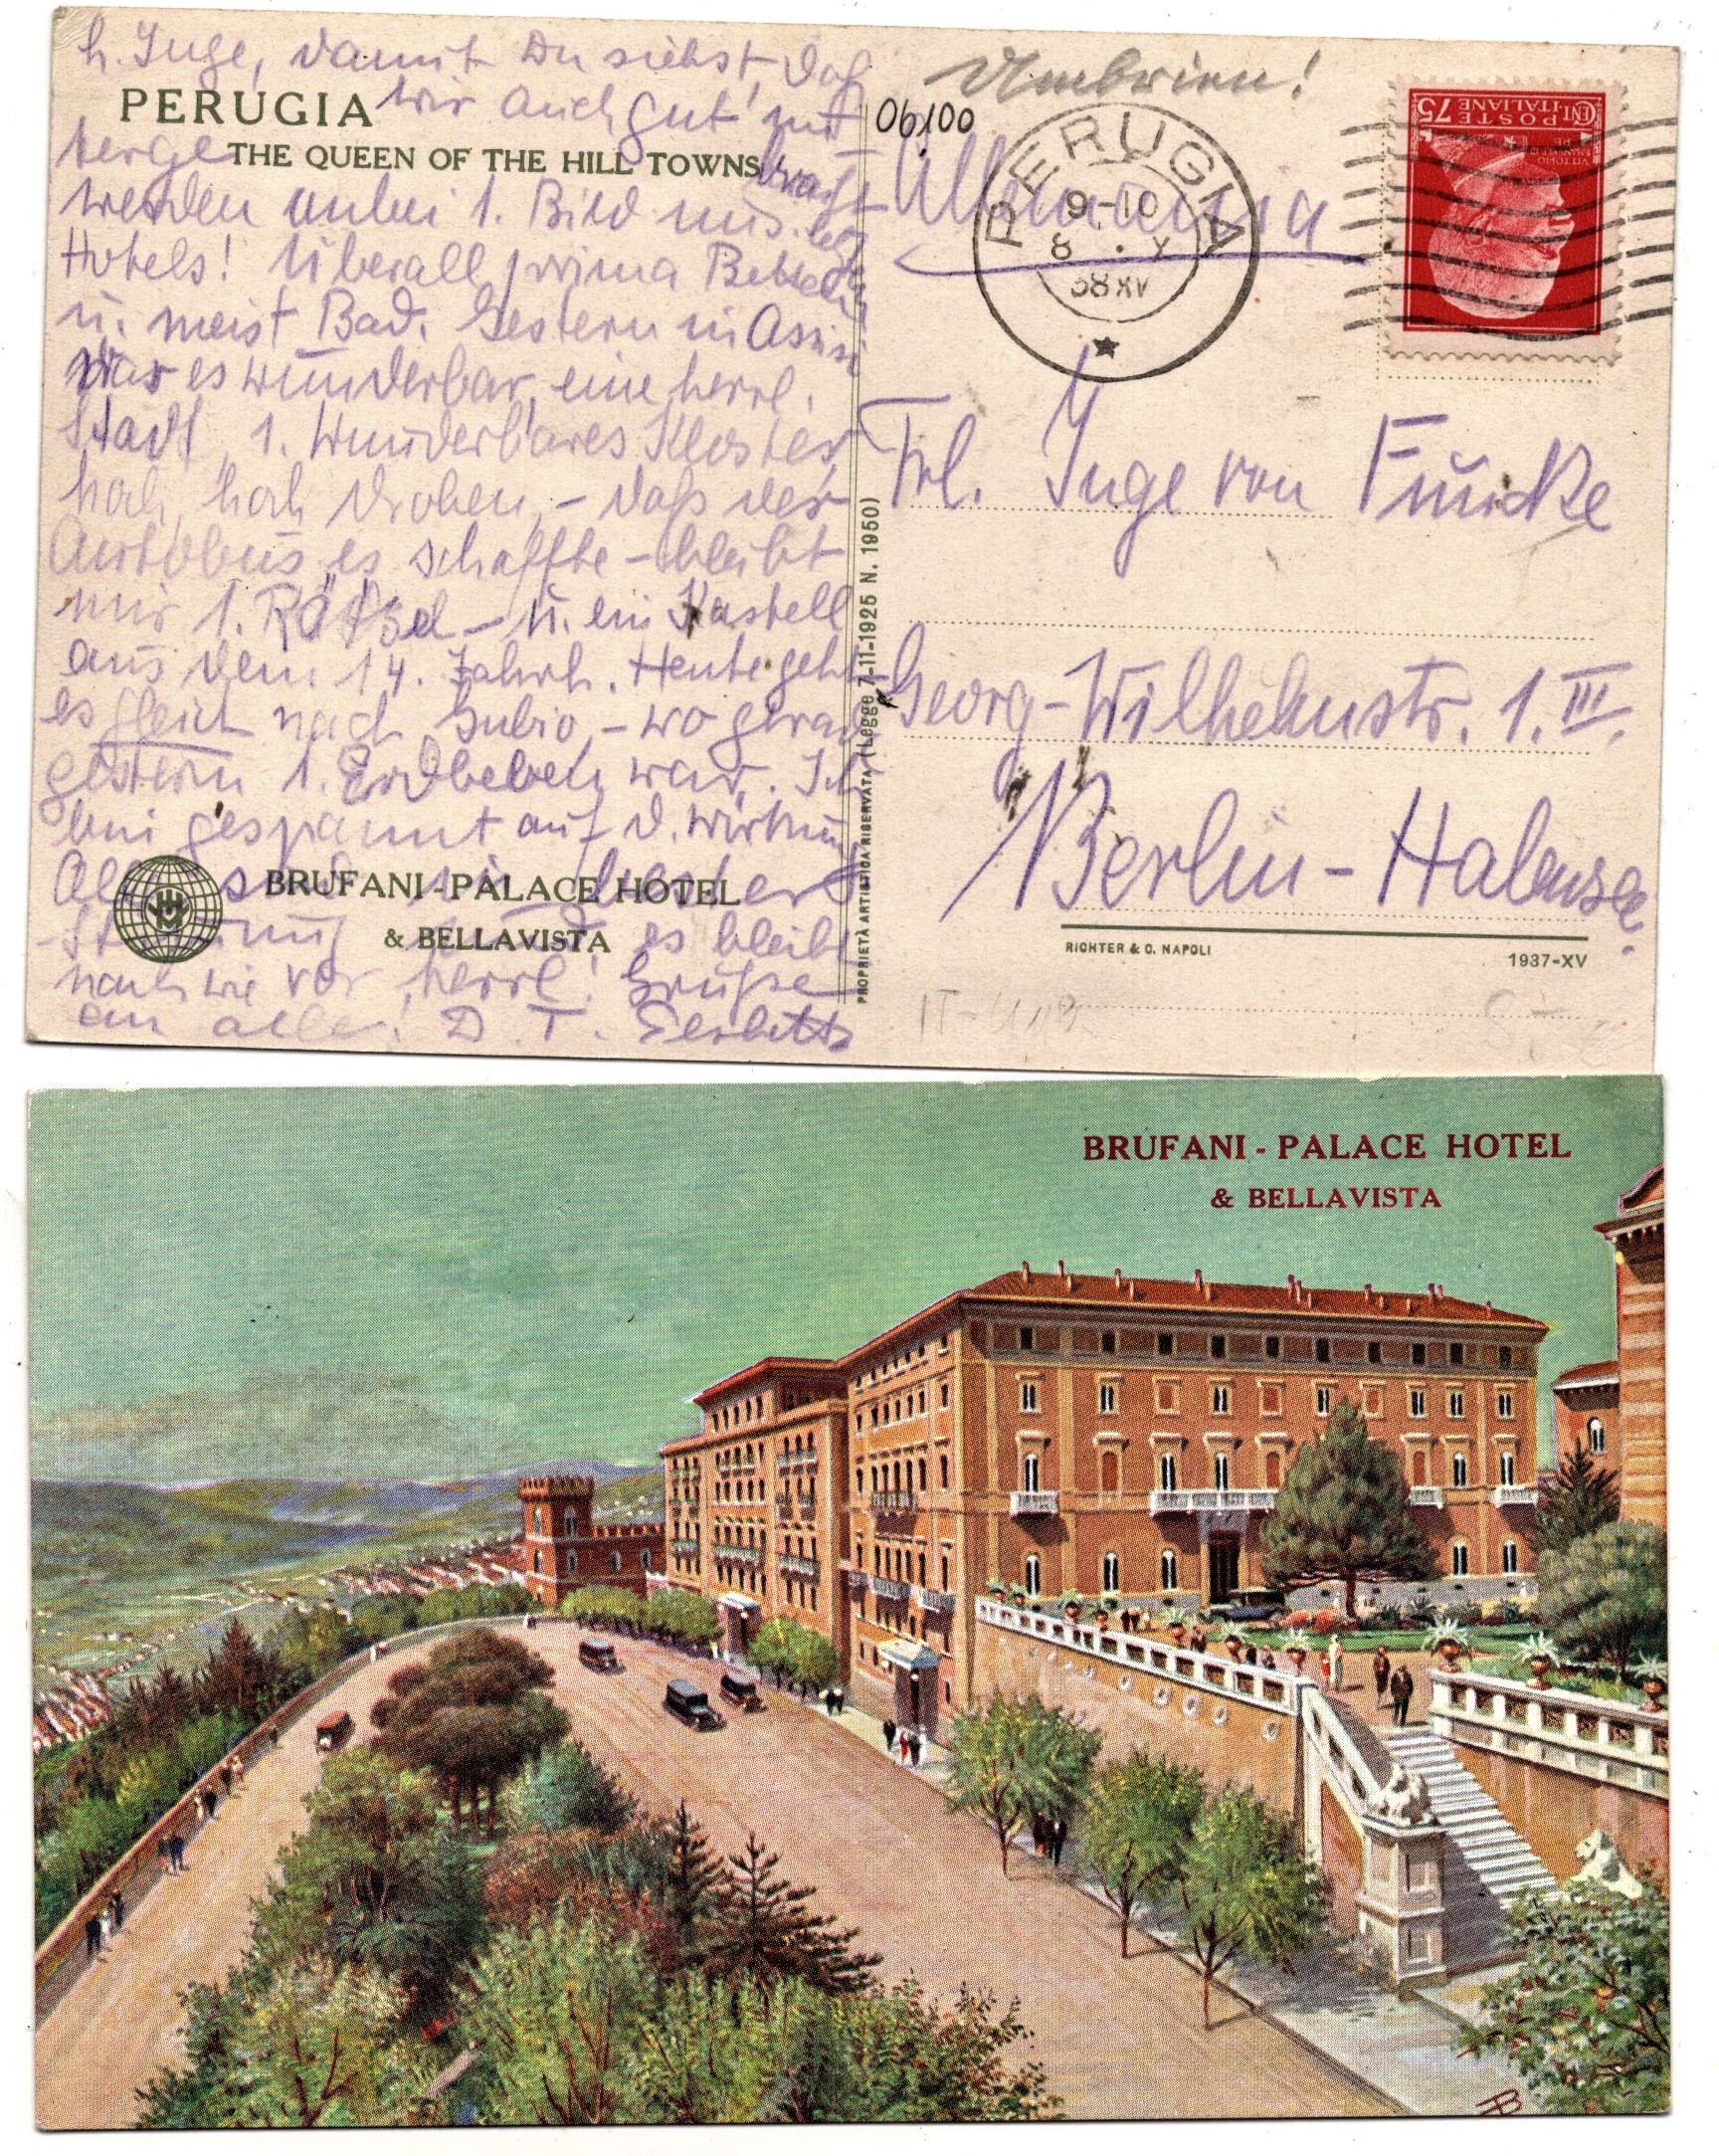 L. Inge, damit Du siehst, daß
wir auch gut unt
berge
bracht
werden anbei 1. Bild uns.
Hotels! Überall prima Betten
u. meist Bad. Gestern in Assisi
war es wunderbar, eine herrl.
Stadt, 1. wunderbares Kloster
hoch, hoch droben, – daß der
Autobus es schaffte – bleibt
mir 1. Rätsel – u. ein Kastell
aus dem 14. Jahrh. Heute geht
es gleich nach Gubio, – wo gerade
gestern 1. Erdbeben war. Ich
bin gespannt auf d. Wirkung
es bleibt
nach wie vor herrl! Grüße
an alle! D. T.
PERUGIA
THE QUEEN OF THE HILL TOWNS
BRUFANI-PALACE HOTEL
& BELLAVISTA
PROPRIETÀ ARTISTICA RISERVATA (Legge 7-11-1925 N. 1950)
Umbrien!
06100
Allemania
PERUGIA
9-10
8 . X
38 XV
CENT. 75
POSTE
ITALIANE
Frl. Inge von Funcke
Georg-Wilhelmstr. 1. III.
Berlin-Halensee.
RICHTER & C. NAPOLI
1937-XV
BRUFANI - PALACE HOTEL
& BELLAVISTA